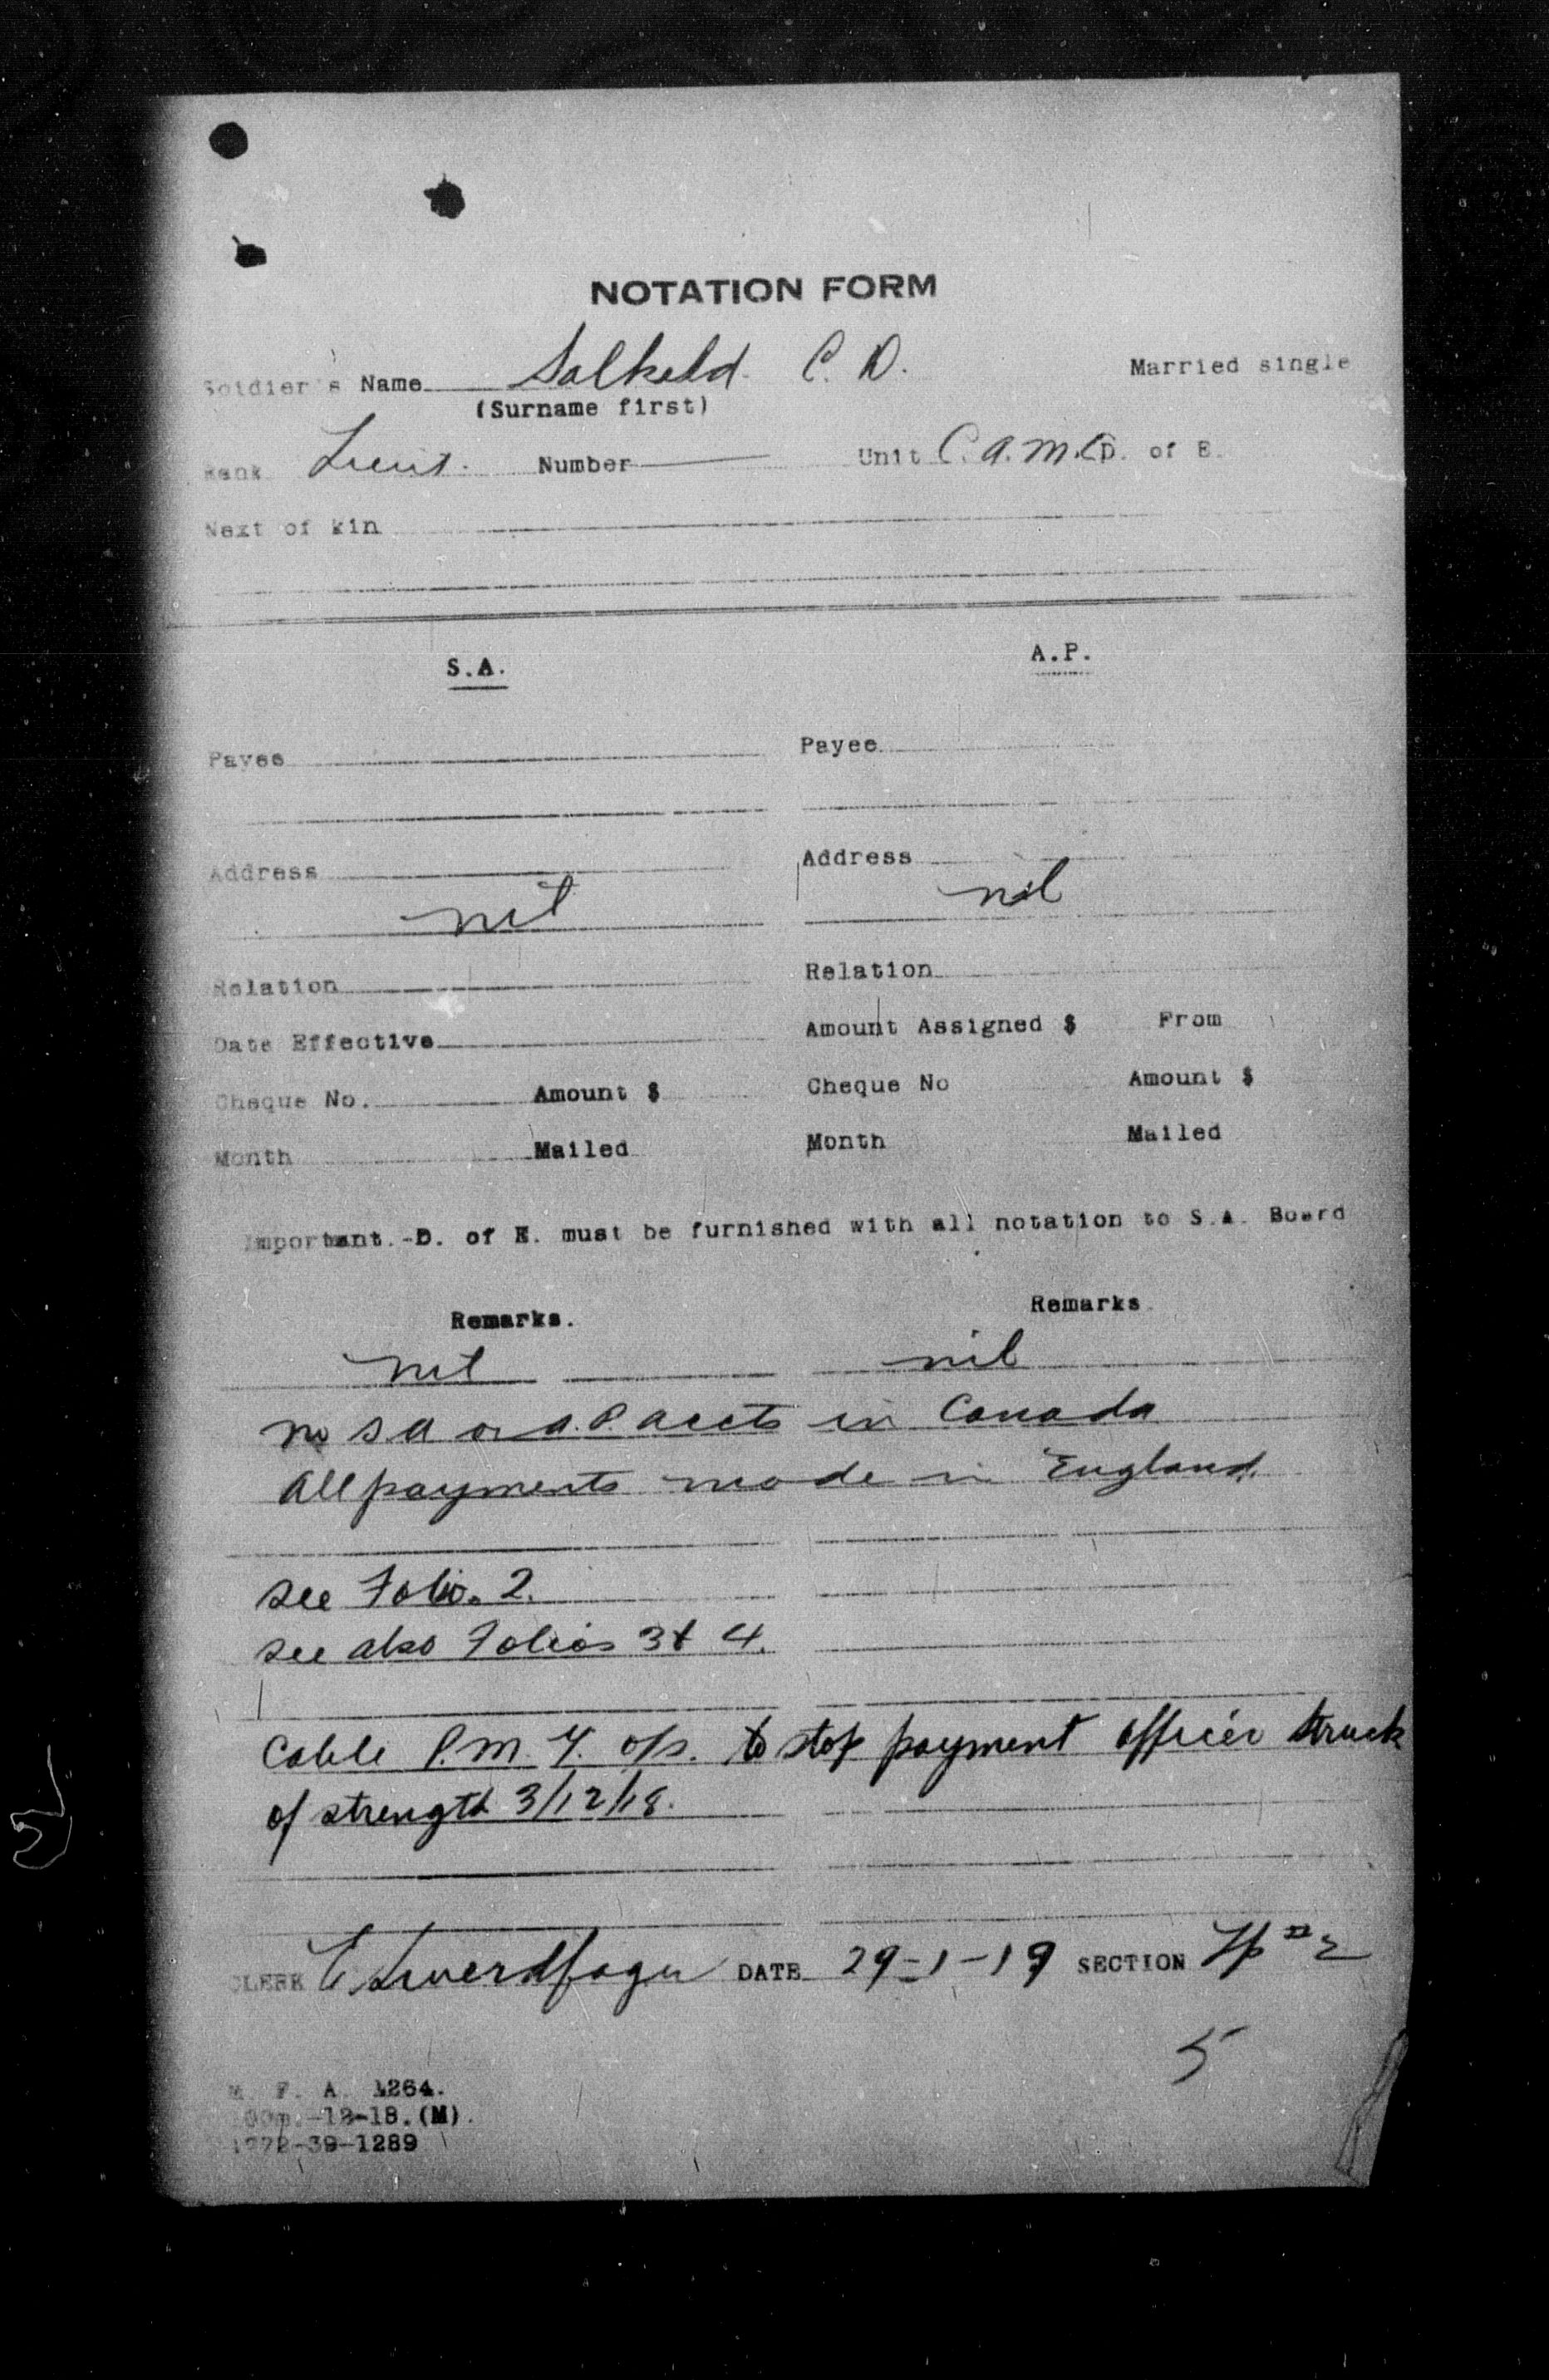 NOTATION FORM
Soldier's Name Salkeld C. D. Married single
(Surname first)
Rank Lieut. Number Unit C.A.M.C. D. of E.
Next of kin
S.A. A.P.
Payee Payee
Address Address
nil nil
Relation Relation
Date Effective Amount Assigned $ From
Cheque No. Amount $ Cheque No Amount $
Month Mailed Month Mailed
Important.-D. of E. must be furnished with all notation to S.A. Board
Remarks. Remarks
nil nil
no SA or A.P. accts in Canada
All payments made in England.
see Folio. 2.
see also Folios 3 & 4.
Cable P.M. G. o/s. to stop payment officer struck
of strength 3/12/18.
CLERK DATE 29-1-19 SECTION
5
M. F. A. 1264.
-12-18.(M).
1772-39-1289